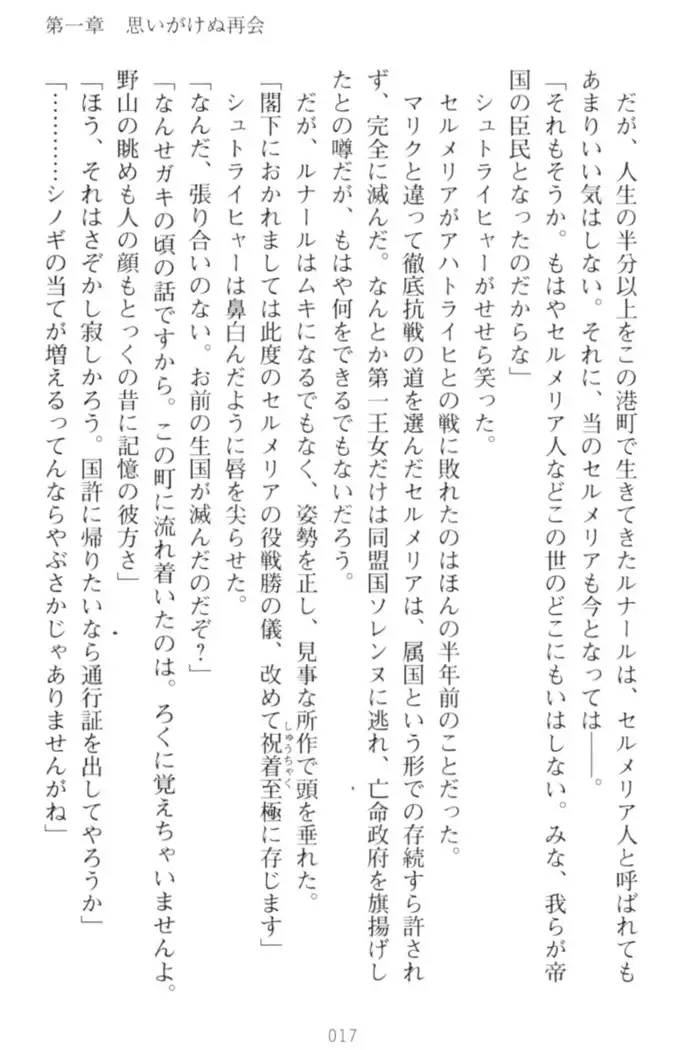 第一章　思いがけぬ再会
　だが、人生の半分以上をこの港町で生きてきたルナールは、セルメリア人と呼ばれても
あまりいい気はしない。それに、当のセルメリアも今となっては――。
「それもそうか。もはやセルメリア人などこの世のどこにもいはしない。みな、我らが帝
国の臣民となったのだからな」
　シュトライヒャーがせせら笑った。
　セルメリアがアハトライヒとの戦に敗れたのはほんの半年前のことだった。
　マリクと違って徹底抗戦の道を選んだセルメリアは、属国という形での存続すら許され
ず、完全に滅んだ。なんとか第一王女だけは同盟国ソレンヌに逃れ、亡命政府を旗揚げし
たとの噂だが、もはや何をできるでもないだろう。
　だが、ルナールはムキになるでもなく、姿勢を正し、見事な所作で頭を垂れた。
「閣下におかれましては此度のセルメリアの役戦勝の儀、改めて祝着至極に存じます」
しゅうちゃく
　シュトライヒャーは鼻白んだように唇を尖らせた。
「なんだ、張り合いのない。お前の生国が滅んだのだぞ？」
「なんせガキの頃の話ですから。この町に流れ着いたのは。ろくに覚えちゃいませんよ。
野山の眺めも人の顔もとっくの昔に記憶の彼方さ」
「ほう、それはさぞかし寂しかろう。国許に帰りたいなら通行証を出してやろうか」
「…………シノギの当てが増えるってんならやぶさかじゃありませんがね」
017